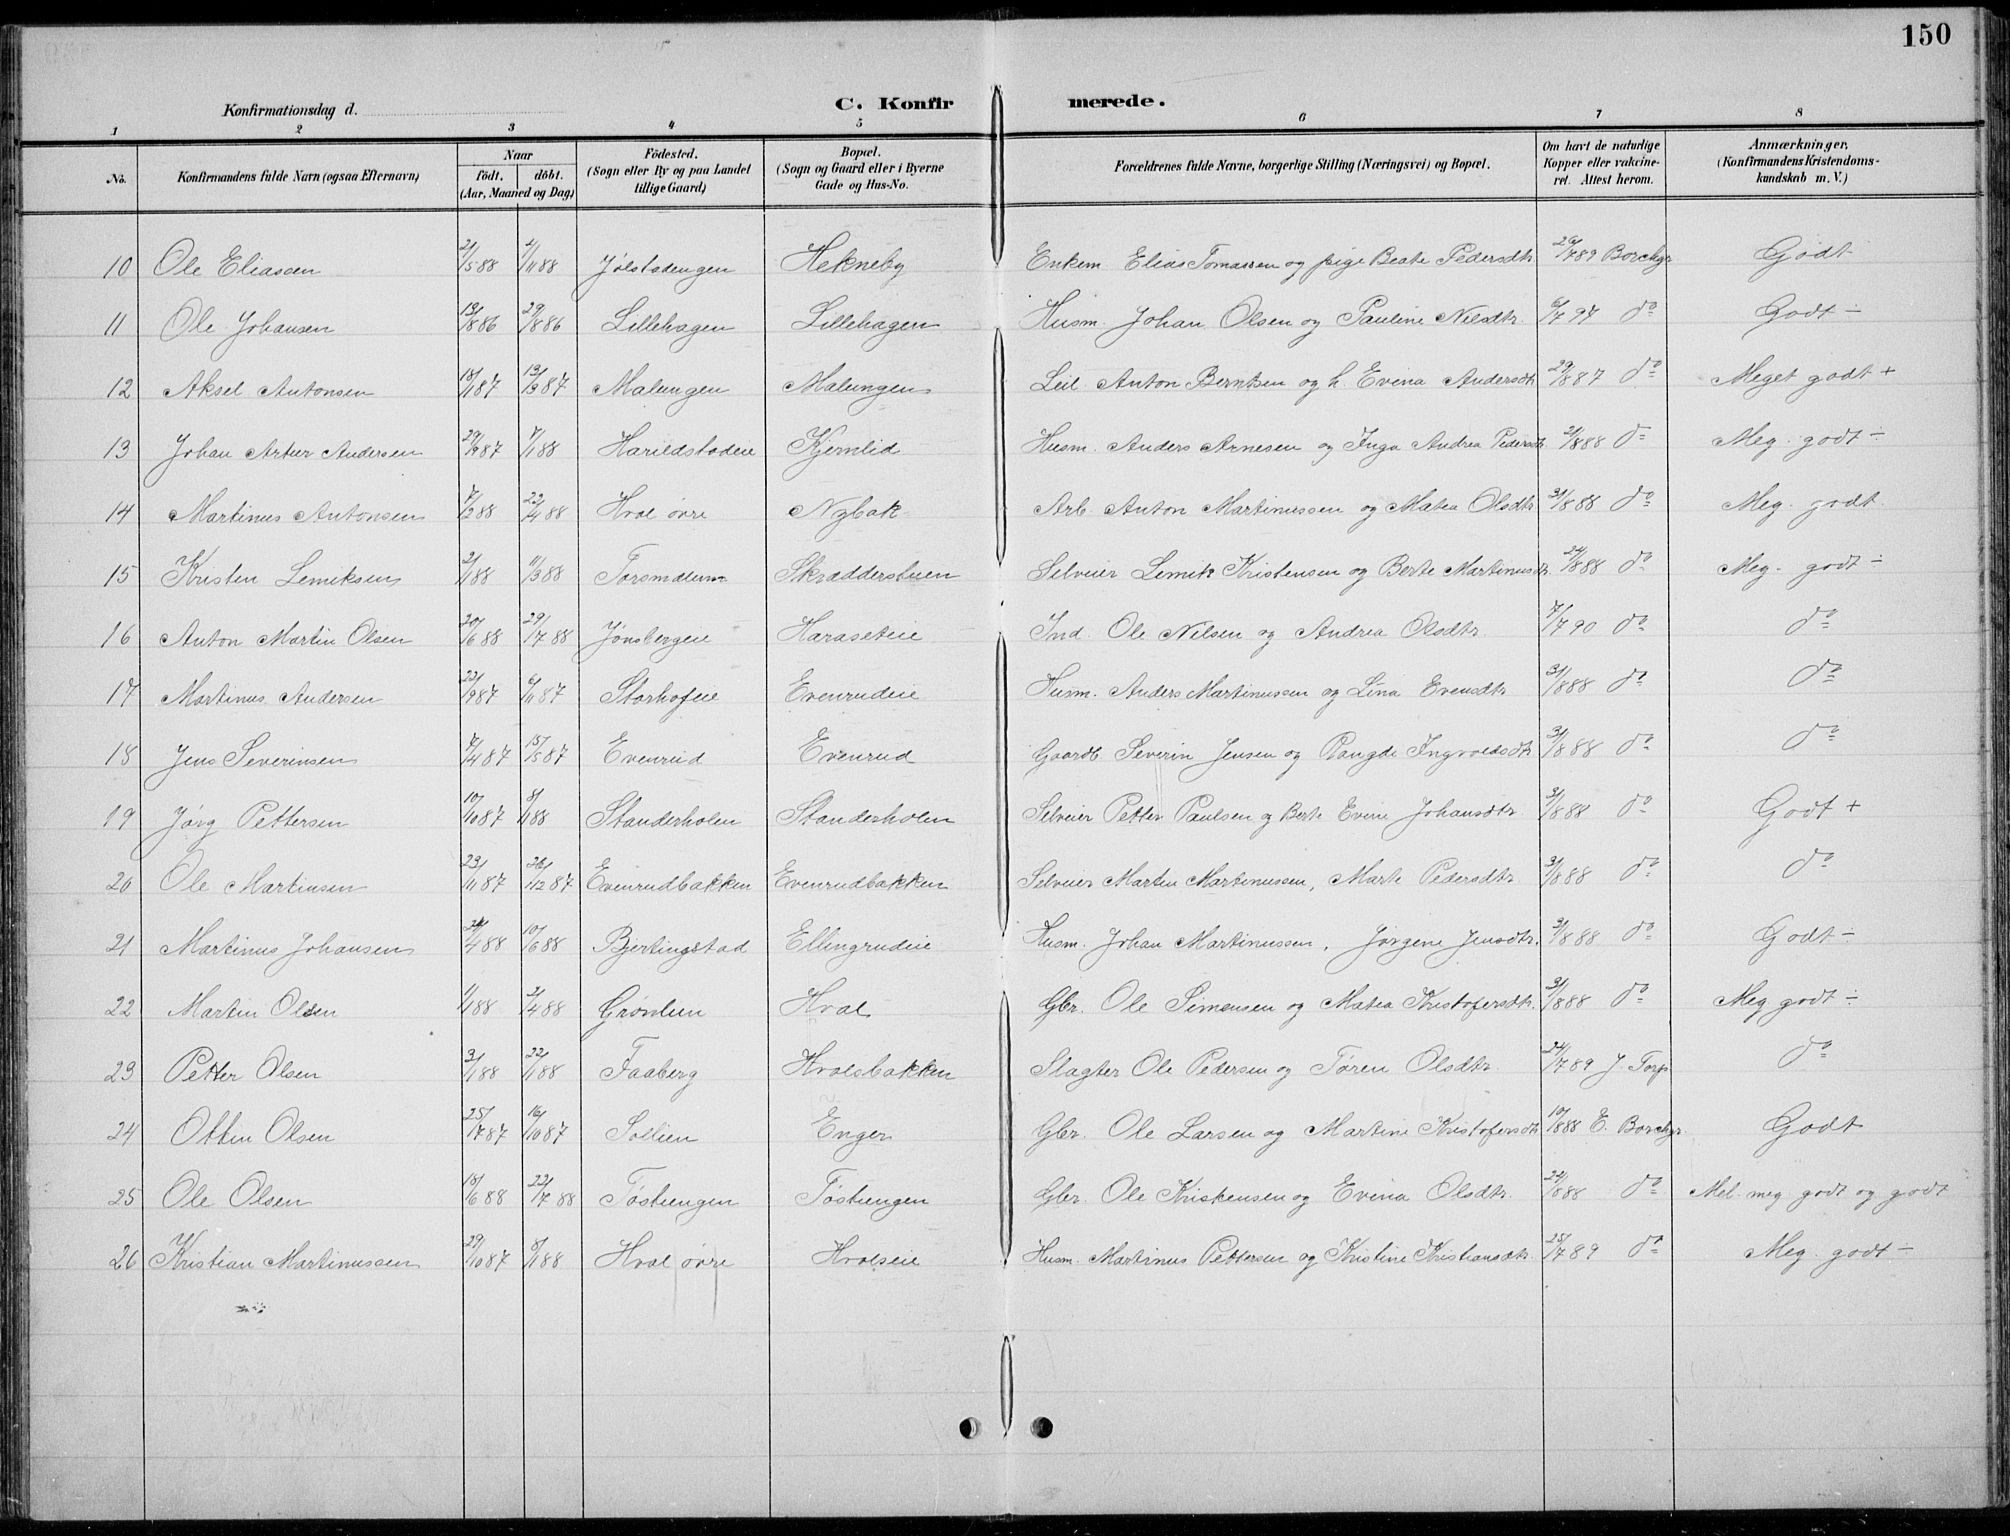 150
Konfirmationsdag d.
C. Konfirmerede.
1 2 3 4 5 6 7 8
No. Konfirmandens fulde Navn (ogsaa Efternavn) Naar født. døbt. (Aar, Maaned og Dag) Fødested. (Sogn eller By og paa Landet tillige Gaard) Bopæl. (Sogn og Gaard eller i Byerne Gade og Hus-No. Forældrenes fulde Navne, borgerlige Stilling (Næringsvei) og Bopæl. Om havt de naturlige Kopper eller vakcineret. Attest herom. Anmærkninger. (Konfirmandens Kristendomskundskab m. V.)
10 Ole Eliasen 2/5 88 4/11 88 Jølstadengen Hekneby Enkem. Elias Tomassen og pige Beate Pedersdtr 26/7 89 Borchgr Godt
11 Ole Johansen 13/8 86 29/8 86 Lillehagen Lillehagen Husm. Johan Olsen og Pauline Nilsdtr. 6/7 97 do Godt ÷
12 Aksel Antonsen 18/1 87 13/3 87 Malungen Malungen Leil. Anton Berntsen og h. Evina Andersdtr 29/8 87 do Meget godt +
13 Johan Artur Andersen 29/9 87 7/1 88 Harildstadeie Kjernlid Husm. Anders Arnesen og Inga Andrea Pedersdtr. 31/8 88 do Meg. godt ÷
14 Martinus Antonsen 7/2 88 22/4 88 Hval øvre Nybak Arb. Anton Martinussen og Matea Olsdtr 31/8 88 do Meg. godt.
15 Kristen Lemiksen 2/1 88 11/3 88 Skrædderstuen Selveier Lemik Kristensen og Berte Martinusdtr. 24/8 88 do Meg. godt ÷
16 Anton Martin Olsen 20/6 88 29/7 88 Jønsbergeie Haraseteie Ind. Ole Nilsen og Andrea Olsdtr. 7/7 90 do do
17 Martinus Andersen 22/9 87 6/11 87 Storhofeie Evenrudeie Husm. Anders Martinussen og Lina Evensdtr 31/8 88 do do
18 Jens Severinsen 7/4 87 15/5 87 Evenrud Evenrud Gaardb. Severin Jensen og Rangdi Ingvoldsdtr 31/8 88 do do
19 Jørg Pettersen 10/10 87 8/1 88 Standerholen Standerholen Selveier Petter Paulsen og Berte Evine Johansdtr. 31/8 88 do Godt +
20 Ole Martinsen 23/11 87 26/12 87 Evenrudbakken Evenrudbakken Selveier Martin Martinussen, Marte Pedersdtr. 31/8 88 do do
21 Martinus Johansen 24/4 88 10/6 88 Bjertingstad Ellingrudeie Husm. Johan Martinussen, Jørgene Jensdtr. 31/8 88 do Godt ÷
22 Martin Olsen 1/1 88 2/4 88 Grønlien Hval Gbr. Ole Simensen og Matea Kristofersdtr. 31/8 88 do Meg godt ÷
23 Petter Olsen 3/1 88 22/1 88 Faaberg Hvalsbakken Slagter Ole Pedersen og Tøren Olsdtr. 24/7 89 J. Torp do
24 Ottin Olsen 25/7 87 16/10 87 Sollien Enger Gbr. Ole Larsen og Martine Kristofersdtr 10/8 88 E. Borchgr Godt
25 Ole Olsen 18/6 88 22/7 88 Tøstiengen Tøstiengen Gbr. Ole Kristensen og Evina Olsdtr. 22/8 88 do Mel. meg godt og godt
26 Kristian Martinussen 29/10 87 8/1 88 Hval øvre Hvalseie Husm. Martinus Pettersen og Kristine Kristiansdtr. 25/7 89 do Meg. godt ÷